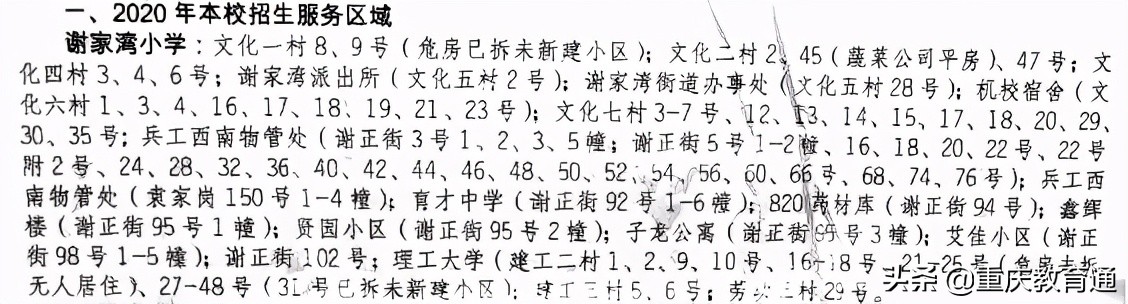 一、2020年本校招生服务区域
谢家湾小学：文化一村8、9号（危房已拆未新建小区）；文化二村2、45（蔬菜公司平房）、47号；文
化四村3、4、6号；谢家湾派出所（文化五村2号）；谢家湾街道办事处（文化五村28号）；机校宿舍（文
化六村1、3、4、16、17、18、19、21、23号）；文化七村3-7号、12、13、14、15、17、18、20、29、
30、35号；兵工西南物管处（谢正街3号1、2、3、5幢；谢正街5号1-2幢、16、18、20、22号、22号
附2号、24、28、32、36、40、42、44、46、48、50、52、54、56、60、66号、68、74、76号）；兵工西
南物管处（袁家岗150号1-4幢）；育才中学（谢正街92号1-6幢）；820药材库（谢正街94号）；鑫辉
楼（谢正街95号1幢）；贤园小区（谢正街95号2幢）；子龙公寓（谢正街95号3幢）；艾佳小区（谢正
街98号1-5幢）；谢正街102号；理工大学（建工二村1、2、9、10号、16-18号、21-25号（危房未拆
无人居住）、27-48号（31号已拆未新建小区）；建工三村5、6号；劳动三村29号。
头条@重庆教育通